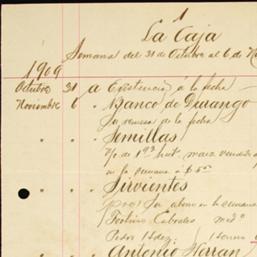 1
La Caja
Semana del 31 de Octubre al 6 de
1909
Octubre 31 a Existencia á la fecha
Noviembre 6 " Banco de Durango
Su remesa de la fecha
" " " Semillas
de 1 maiz vendido
en la semana a $5.00
" " " Sirvientes
abono en la semana
Cabrales
Pedro
" " " Antonio Farran